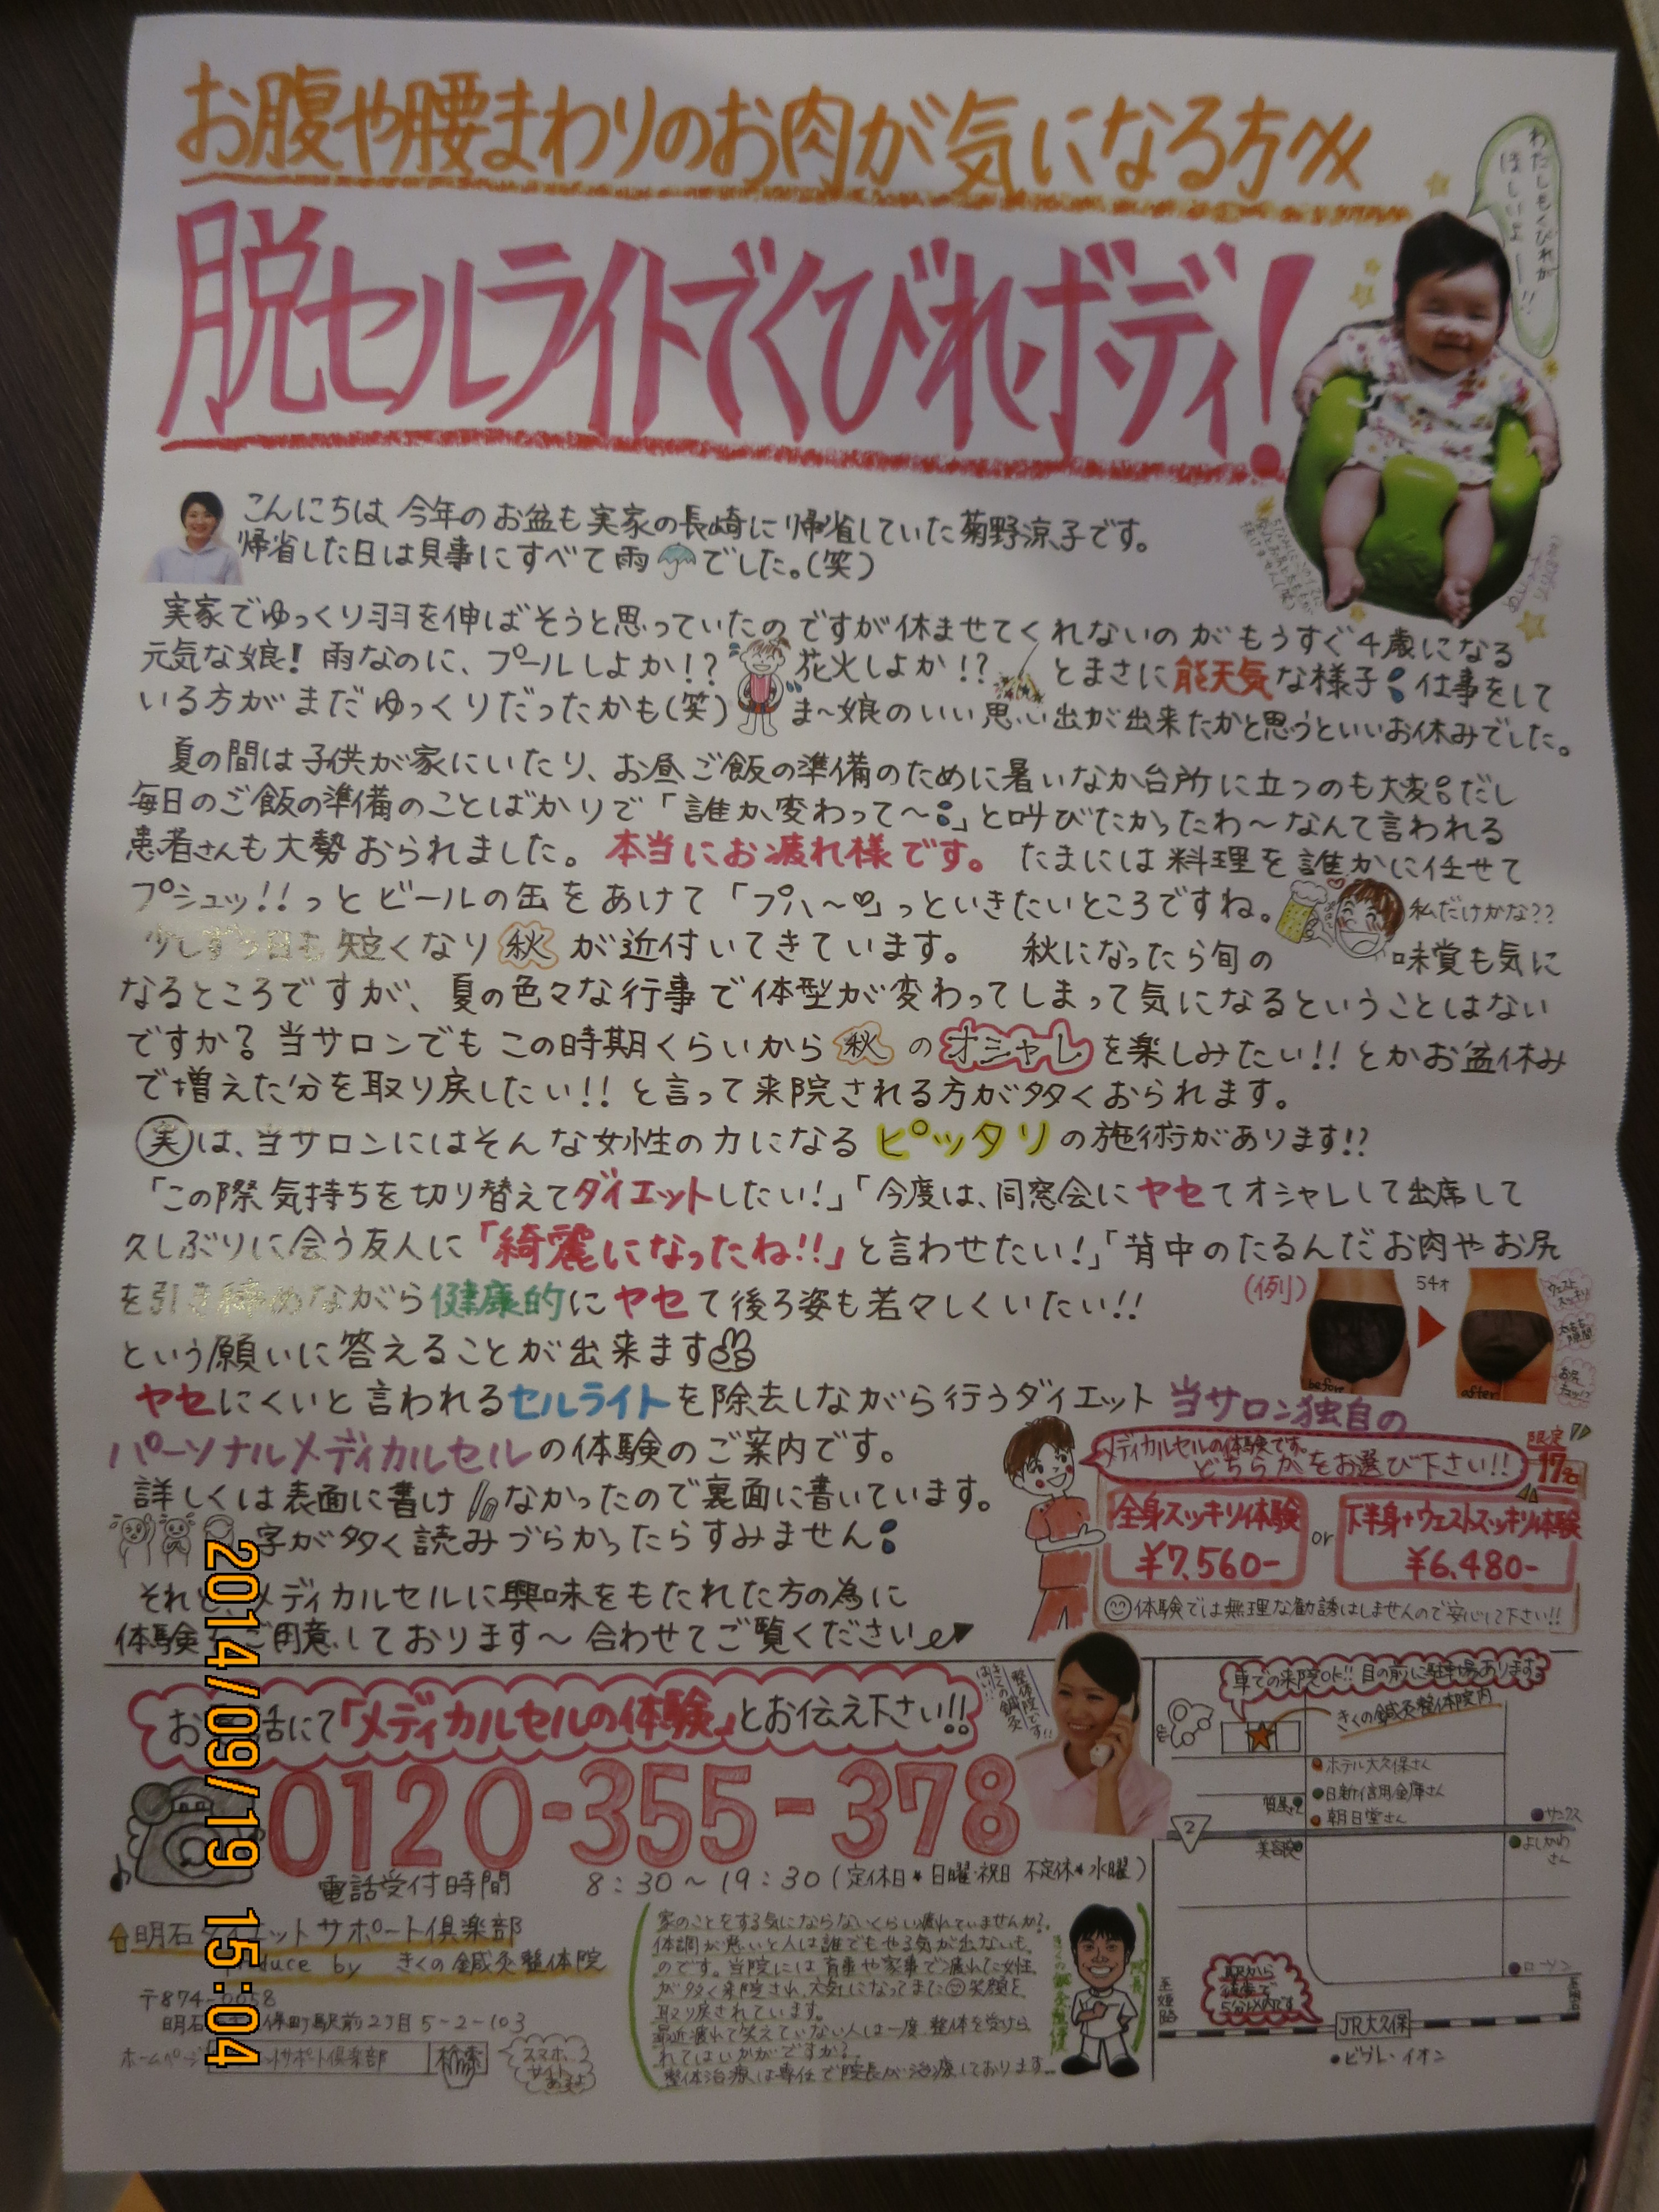 お腹や腰まわりのお肉が気になる方々
わたしもくびれが
ほしいよー!!
脱セルライトでくびれボディ!
こんにちは、今年のお盆も実家の長崎に帰省していた菊野涼子です。
帰省した日は見事にすべて雨でした。(笑)
実家でゆっくり羽を伸ばそうと思っていたのですが休ませてくれないのがもうすぐ4歳になる
元気な娘! 雨なのに、プールしよか!? 花火しよか!? とまさに能天気な様子 仕事をして
いる方がまだゆっくりだったかも(笑) ま~娘のいい思い出が出来たかと思うといいお休みでした。
夏の間は子供が家にいたり、お昼ご飯の準備のために暑いなか台所に立つのも大変だし
毎日のご飯の準備のことばかりで「誰か変わって~」と叫びたかったわ~なんて言われる
患者さんも大勢おられました。本当にお疲れ様です。 たまには料理を誰かに任せて
プシュッ!!っとビールの缶をあけて「プハ~♡」っといきたいところですね。 私だけかな??
少しずつ日も短くなり秋が近付いてきています。 秋になったら旬の味覚も気に
なるところですが、夏の色々な行事で体型が変わってしまって気になるということはない
ですか? 当サロンでもこの時期くらいから秋のオシャレを楽しみたい!! とかお盆休み
で増えた分を取り戻したい!! と言って来院される方が多くおられます。
実は、当サロンにはそんな女性の力になるピッタリの施術があります!?
「この際気持ちを切り替えてダイエットしたい!」「今度は、同窓会にヤセてオシャレして出席して
久しぶりに会う友人に「綺麗になったね!!」と言わせたい!」「背中のたるんだお肉やお尻
を引き締めながら健康的にヤセて後ろ姿も若々しくいたい!!
という願いに答えることが出来ます
(例)
54才
before
after
ヤセにくいと言われるセルライトを除去しながら行うダイエット 当サロン独自の
パーソナルメディカルセルの体験のご案内です。
詳しくは表面に書けなかったので裏面に書いています。
字が多く読みづらかったらすみません
それと、メディカルセルに興味をもたれた方の為に
体験をご用意しております~ 合わせてご覧ください
メディカルセルの体験です。
どちらかをお選び下さい!!
限定
17名
全身スッキリ体験
¥7,560-
or
下半身+ウェストスッキリ体験
¥6,480-
体験では無理な勧誘はしませんので安心して下さい!!
お電話にて「メディカルセルの体験」とお伝え下さい!!
はい!!
きくの鍼灸
整体院です!!
0120-355-378
電話受付時間 8:30~19:30(定休日*日曜・祝日 不定休*水曜)
明石ダイエットサポート倶楽部
produce by きくの鍼灸整体院
〒874-0058
明石 保町駅前2丁目5-2-103
ホームページ
ットサポート倶楽部 検索
スマホ
サイト
あるよ
家のことをする気にならないくらい疲れていませんか?
体調が悪いと人は誰でもやる気が出ないも
のです。当院には育事や家事で疲れた女性
が多く来院され、元気になってまた笑顔を
取り戻されています。
最近疲れて笑えていない人は一度整体を受けら
れてはいかがですか?
整体治療は専任で院長が治療しております。
院長
車での来院OK!! 目の前に駐車場あります
きくの鍼灸整体院内
ホテル大久保さん
日新信用金庫さん
朝日堂さん
質屋さん
美容院
2
サンクス
よしかわ
さん
ローソン
駅から
徒歩で
5分以内です
至姫路
至明石
JR大久保
ビブレ・イオン
2014/09/19 15:04